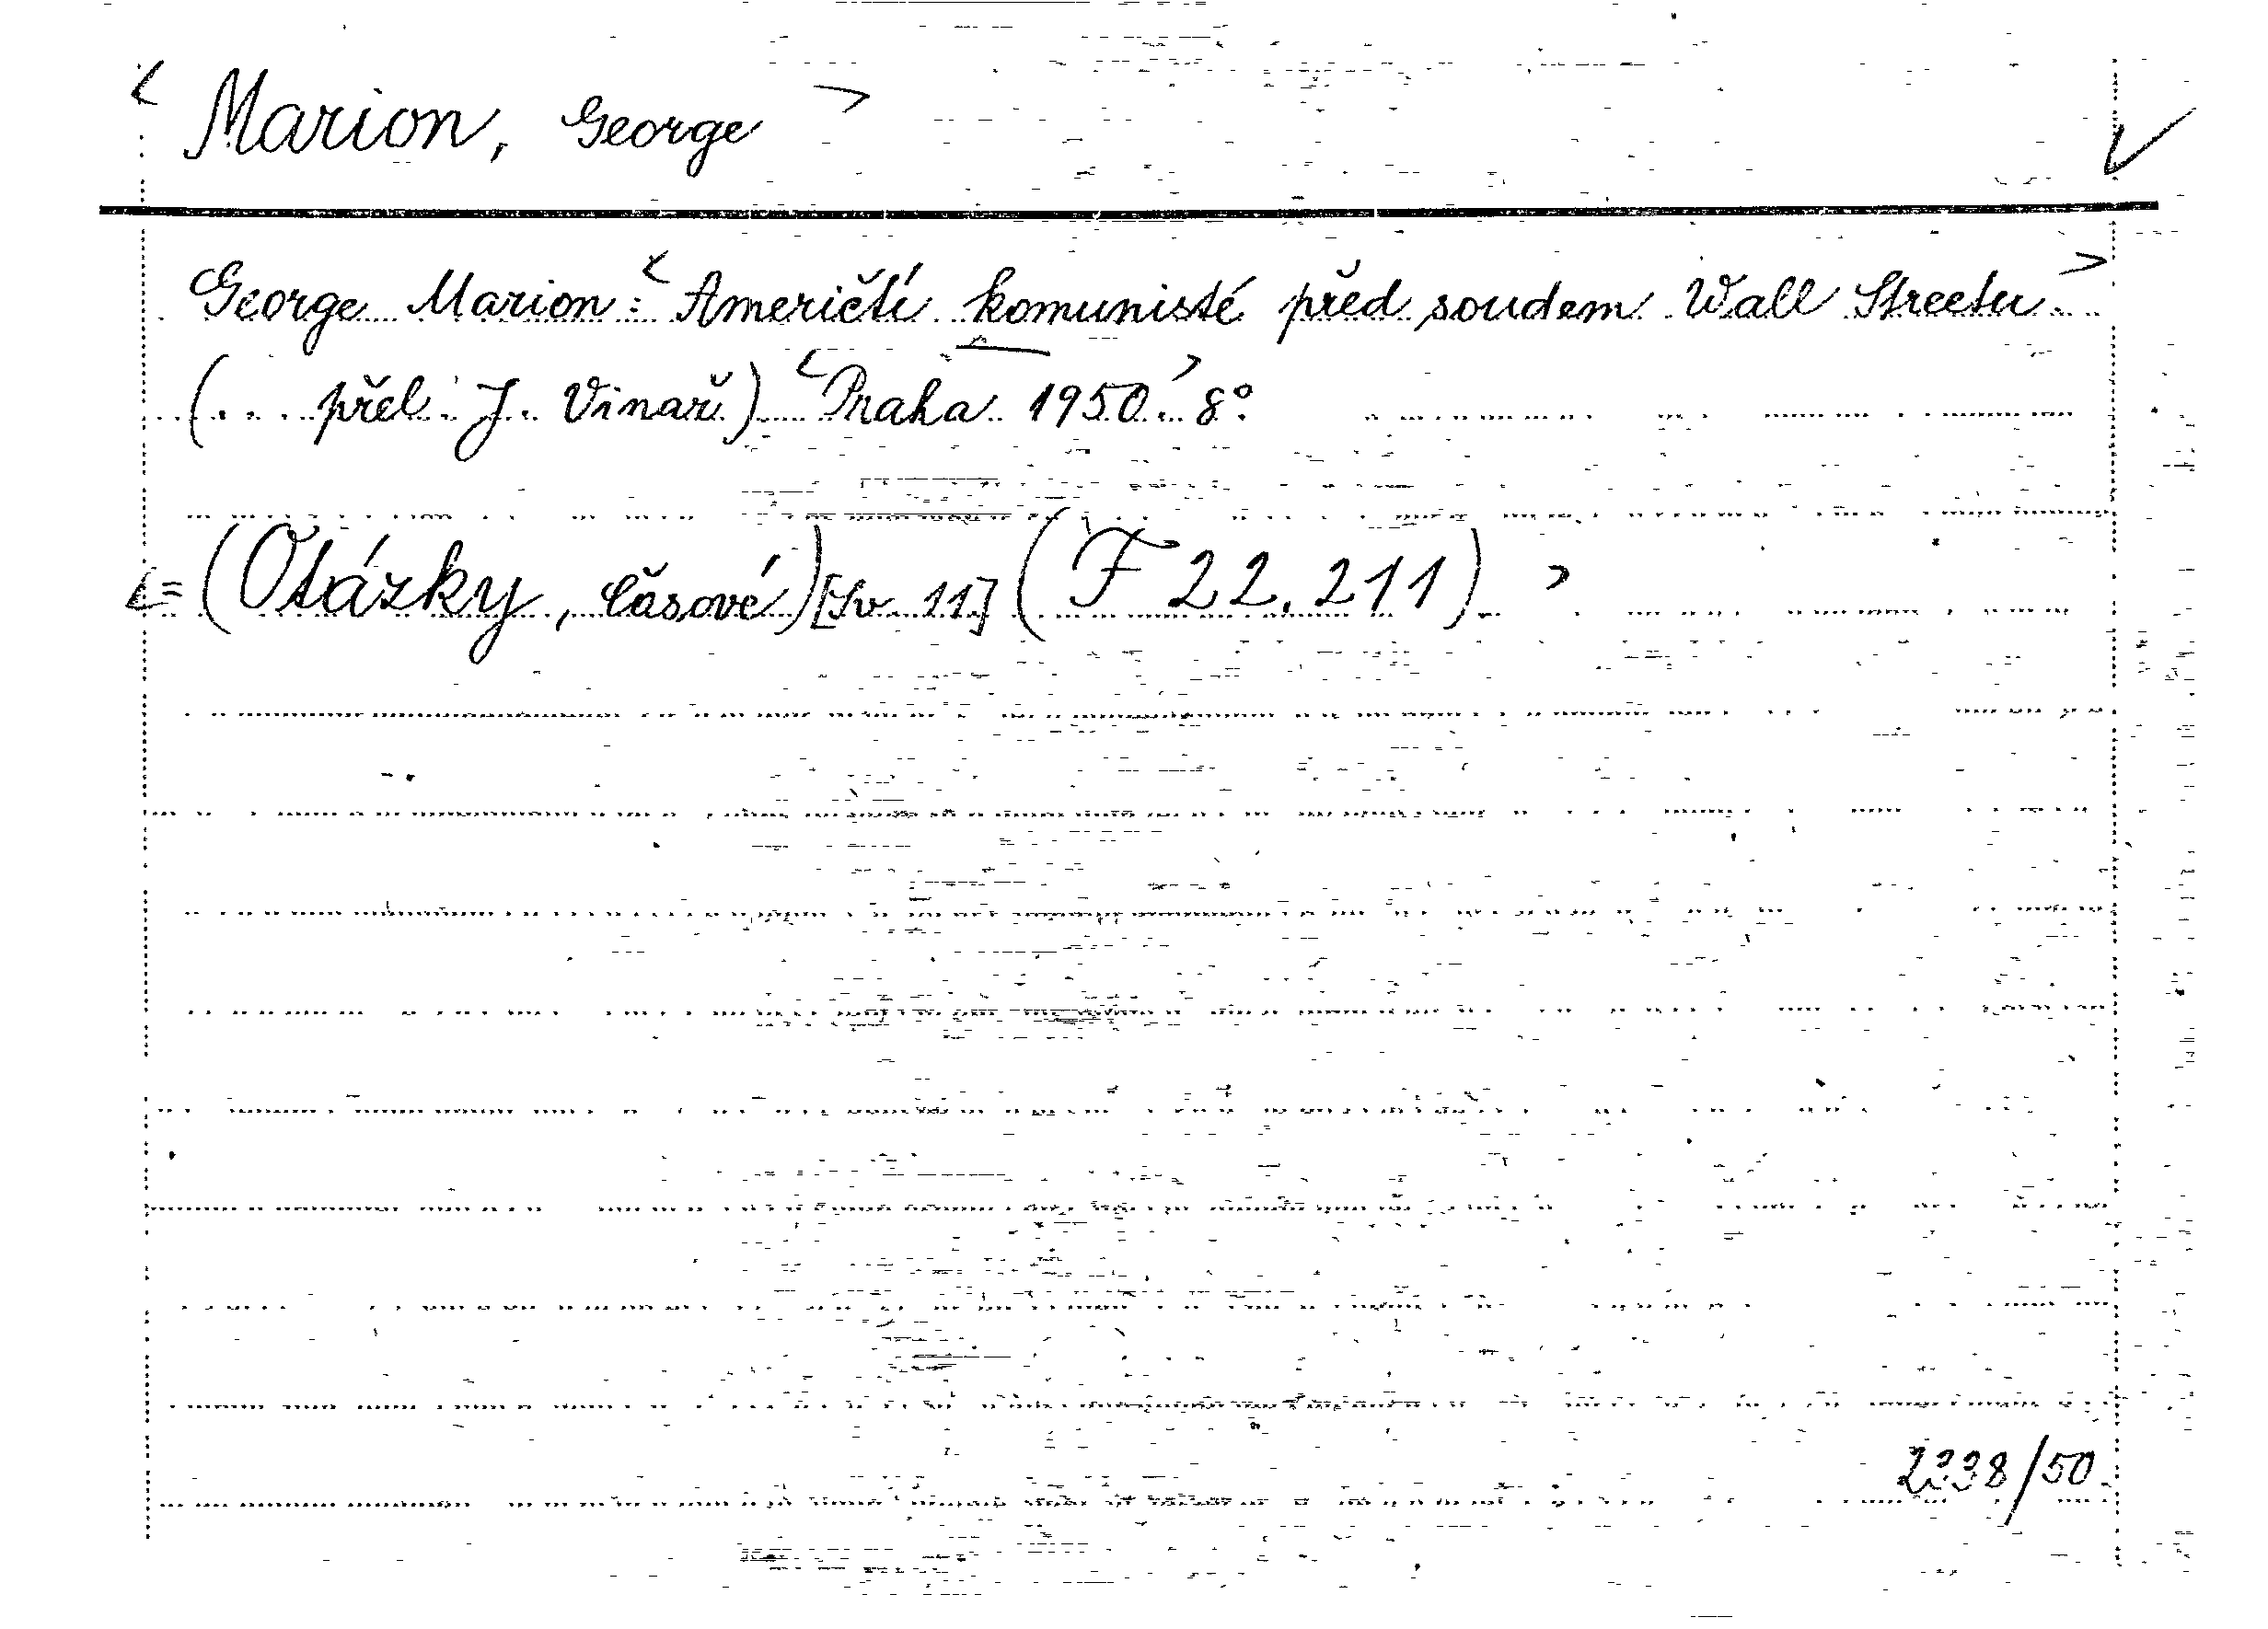 < Marion, George >
George Marion: < Američtí komunisté před soudem Wall Streetu. >
(... přel. J. Vinař) < Praha 1950. > 8°.
< = (Otázky, časové) [Sv. 11] (F 22.211) >
2238/50